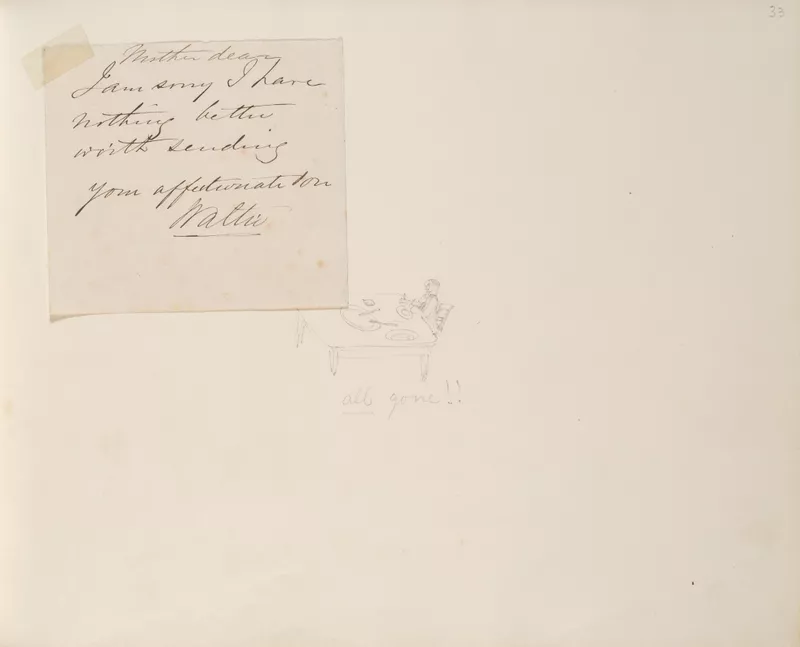 33
Mother dear
I am sorry I have
nothing better
worth sending
your affectionate son
Wattie
all gone!!